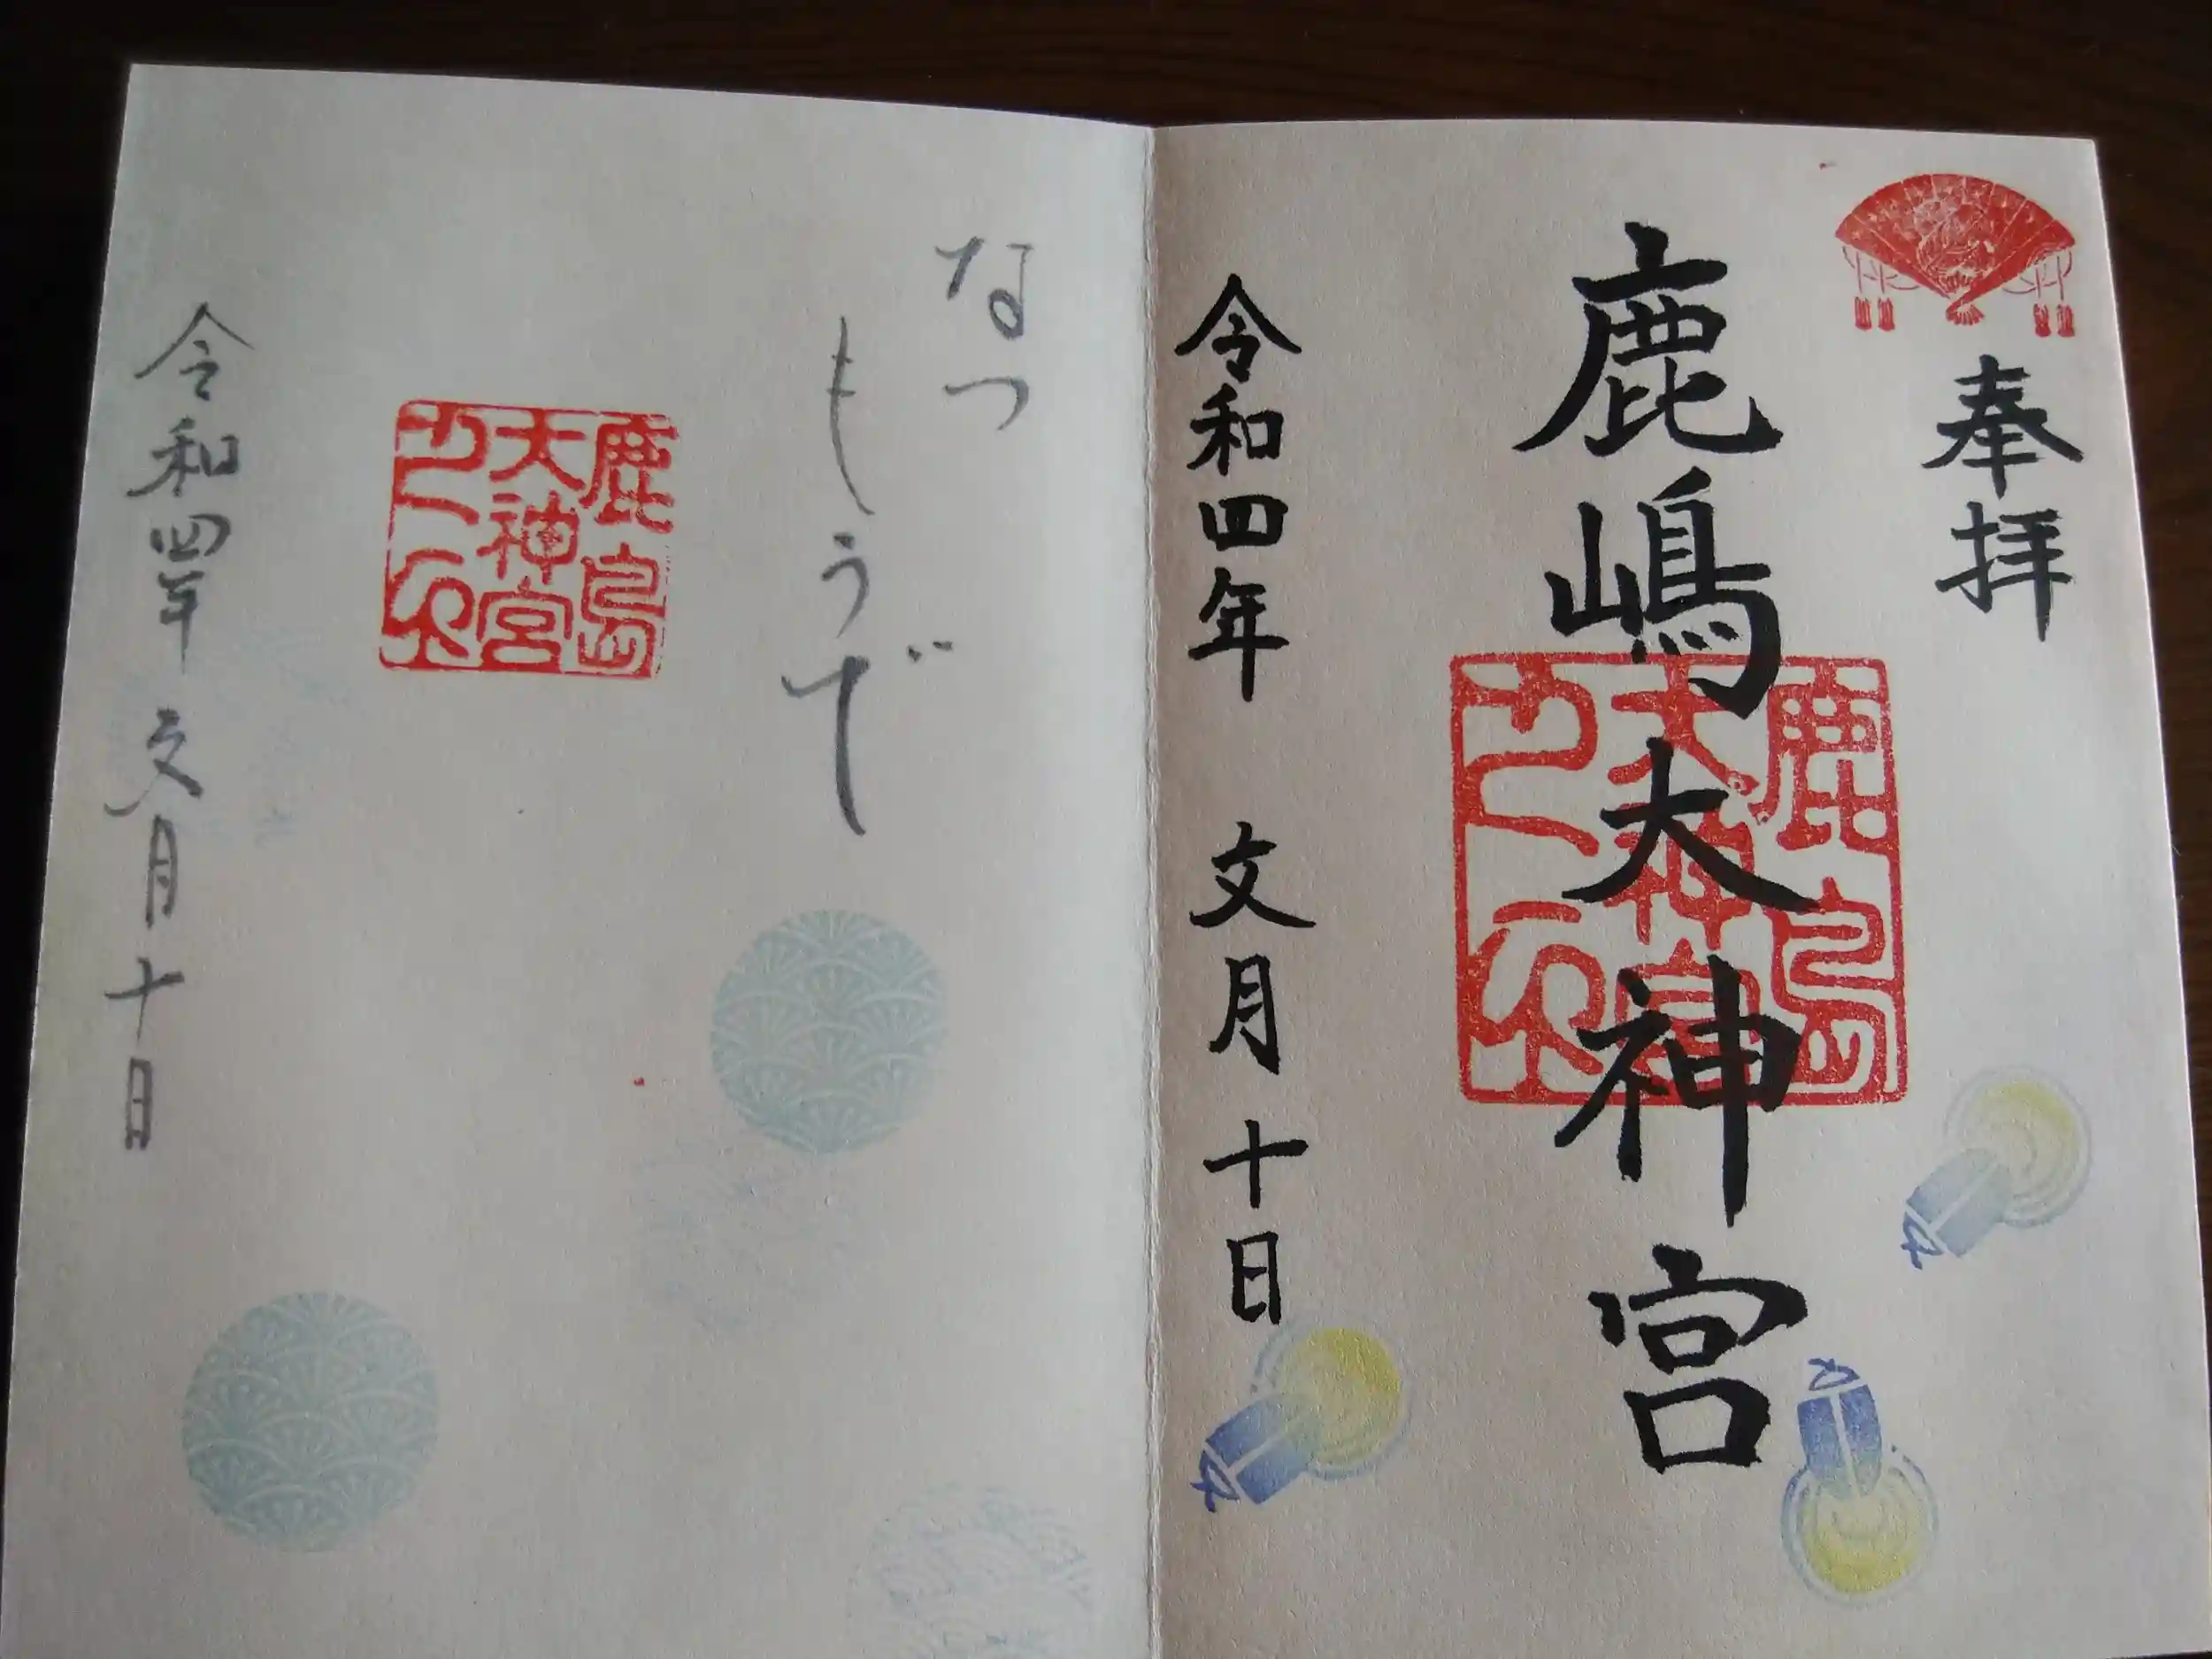 奉拝
鹿嶋大神宮
鹿島
大神宮
之印
令和四年 文月十日
なつ
もうで
鹿島
大神宮
之印
令和四年 文月十日